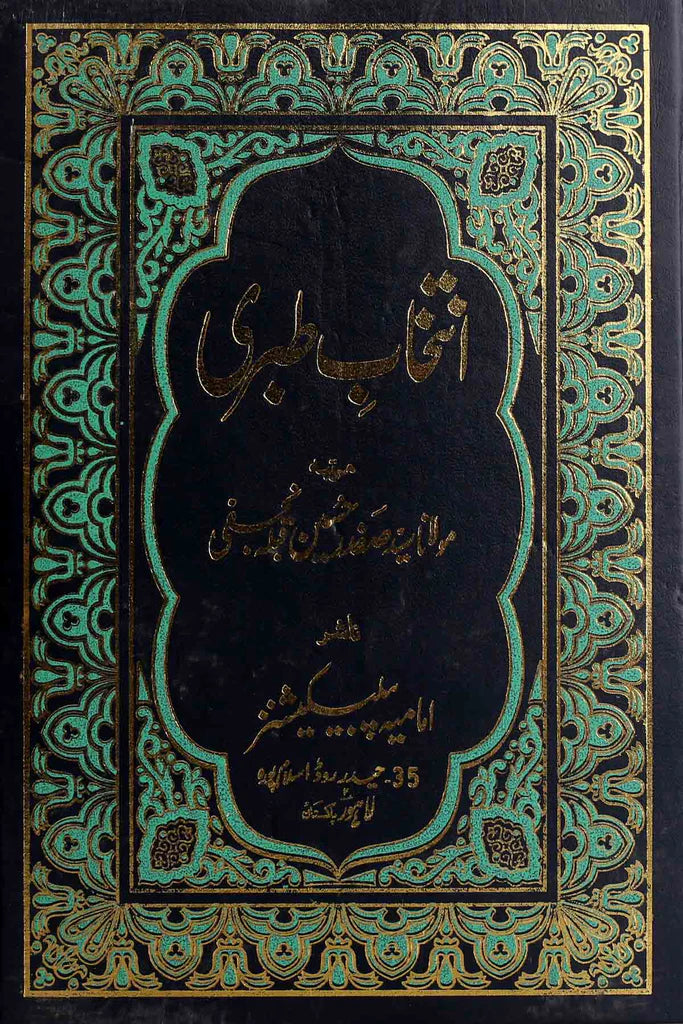 انتخابِ طبری
مرتبہ
مولانا سید صفدر حسین قبلہ نجفی
ناشر
امامیہ پبلیکیشنز
35۔ حیدر روڈ اسلام پورہ
لاہور پاکستان